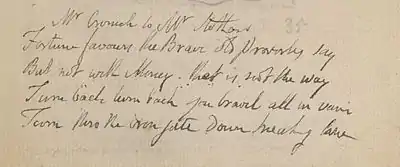 Mr Crouch to Mr Stothard
Fortune favours the Brave Old Proverbs say
But not with Money. that is not the way
Turn back turn back you travel all in vain
Turn thro the iron gate down Sneaking lane